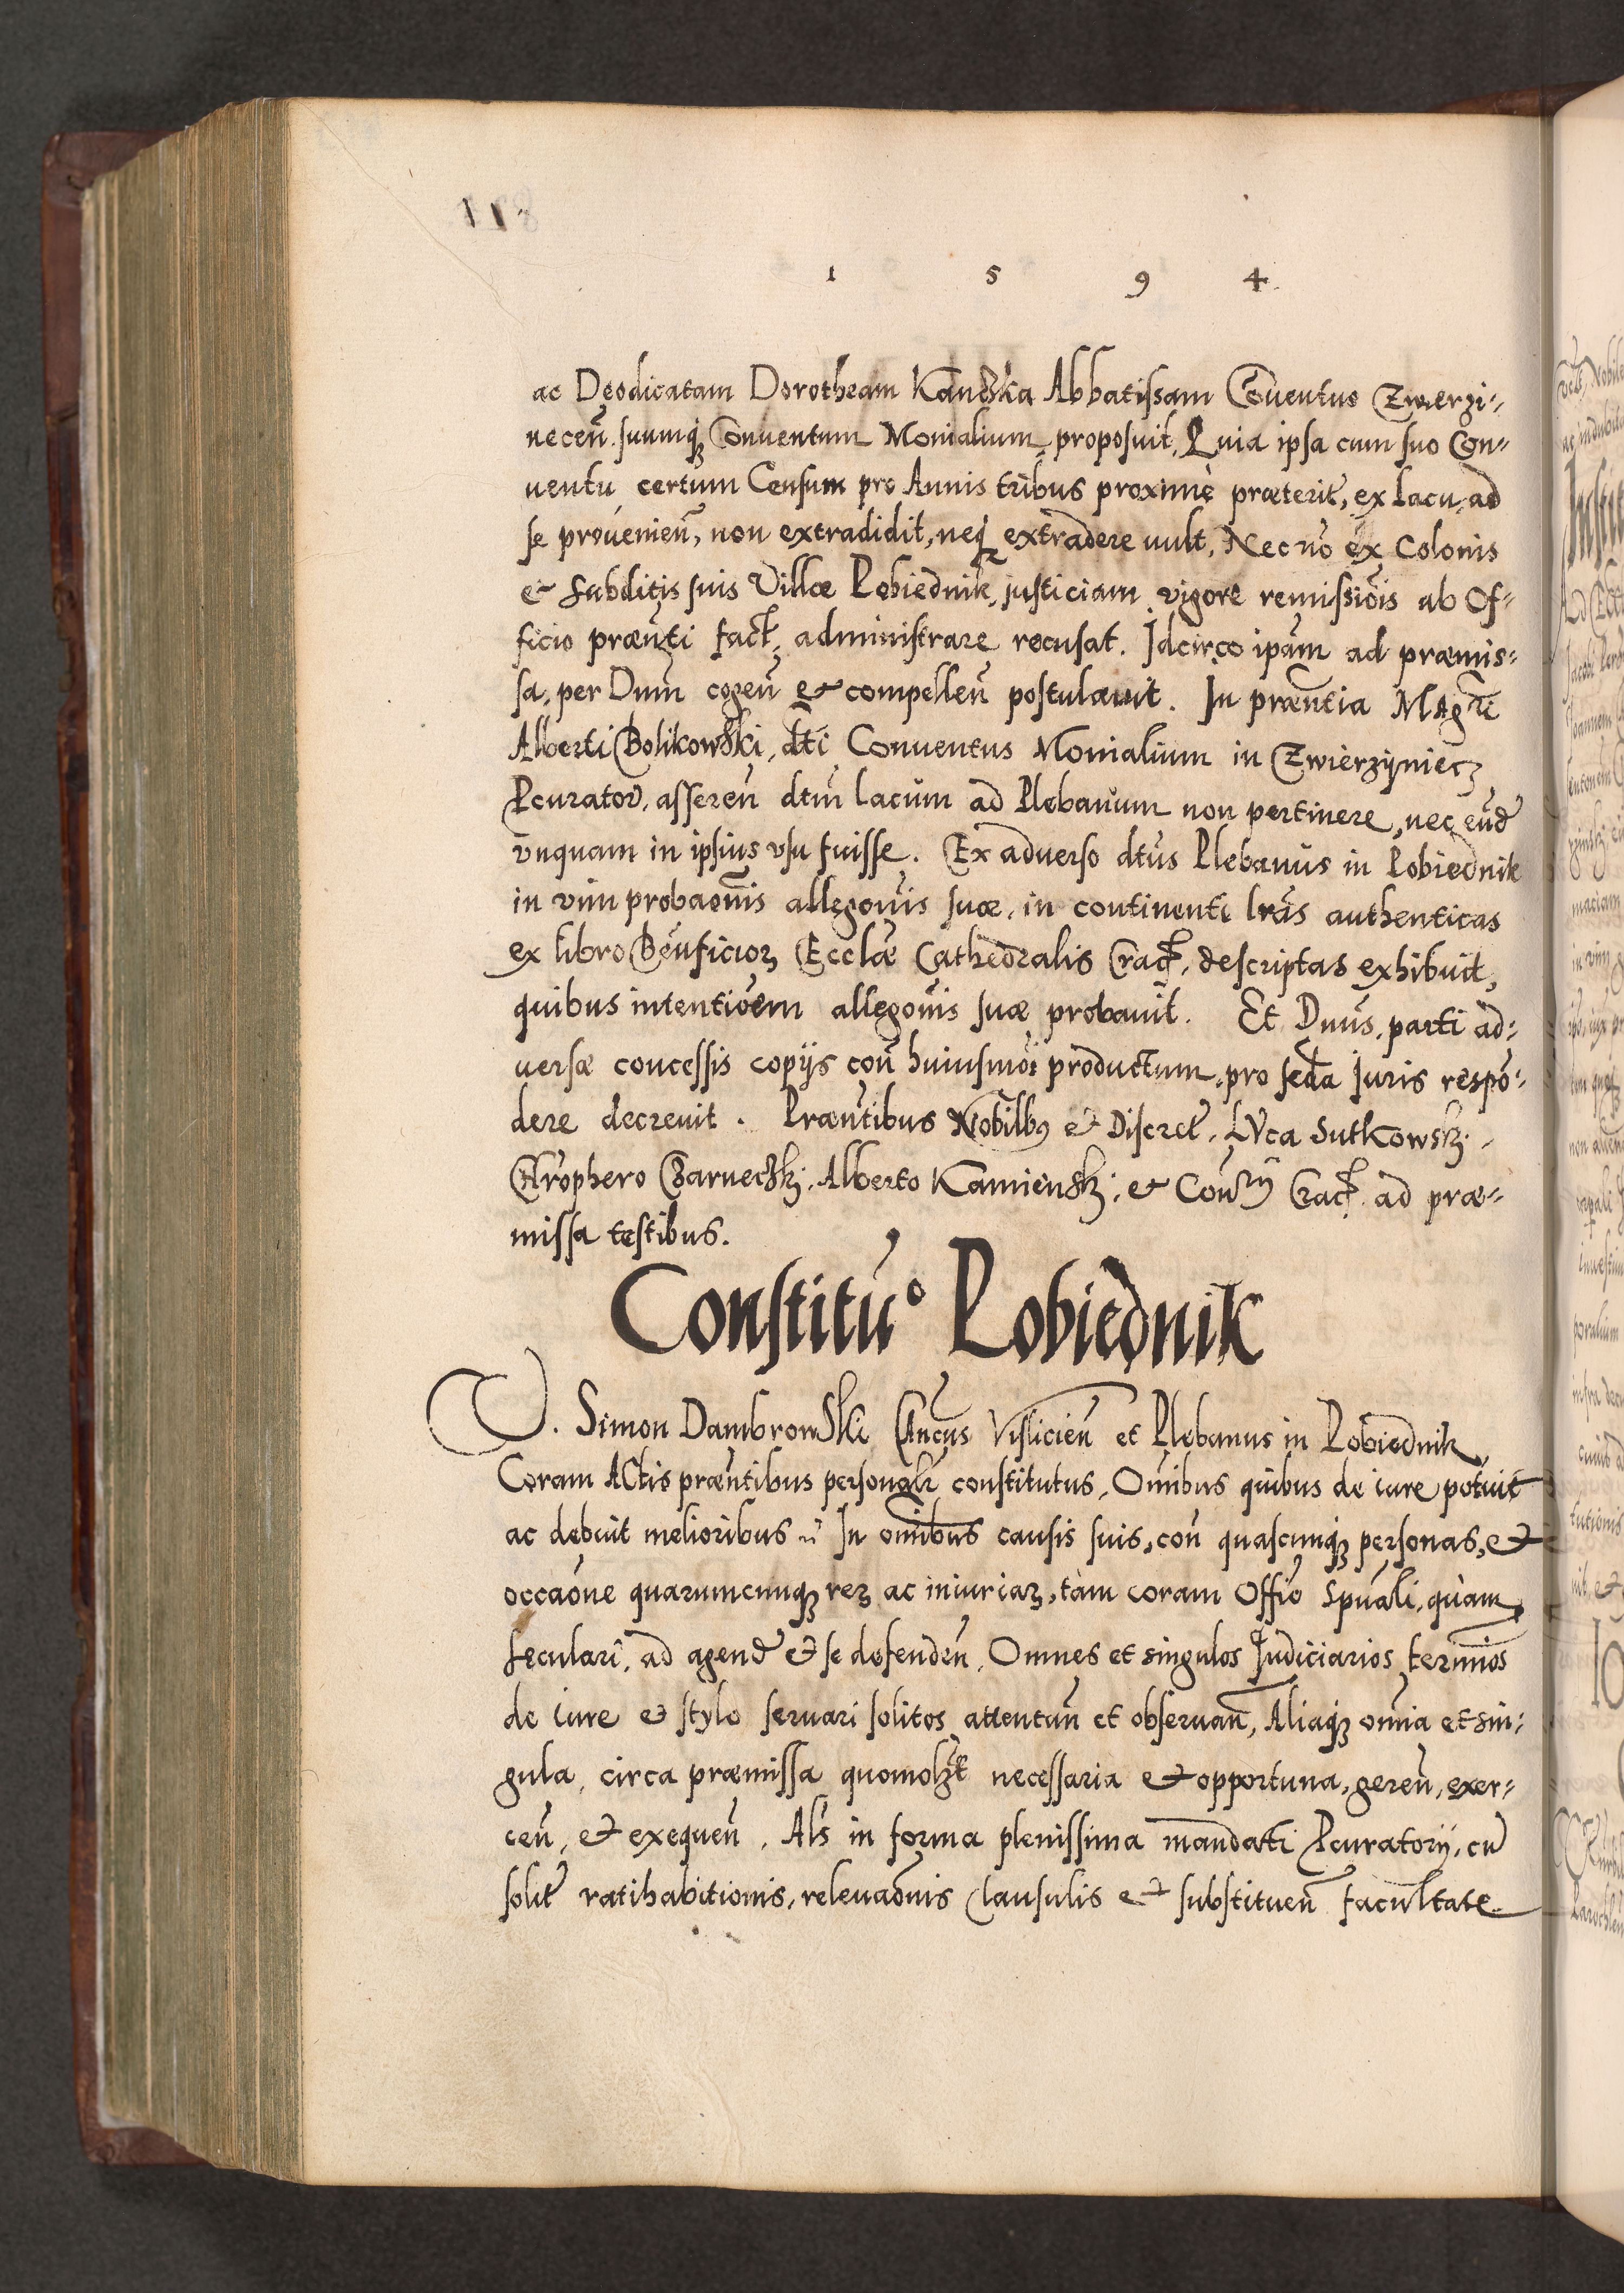 1 5 9 4
ac Deodicatam Dorotheam Kanczka Abbatissam Cōuentus Zwierzi-
necen̄. suumq₃ Conuentum Monialium, proposuit, Quia ipsa cum suo Con-
uentu certum Censum pro Annis tribus proximè præterit̃, ex lacu, ad
se prouenien̄, non extradidit, neq₃ extradere uult, Nec nō ex Colonis
et subditis suis Villæ Pobiednik, justiciam vigore remissiōis ab Of-
ficio præn̄ti fact̃, administrare recusat. Idcirco ip̄am ad præmis-
sa, per Dūm cogen̄ et compellen̄ postulauit. In præn̄tia Mag̃ri
Alberti Bolikowski, dt̄i Conuentus Monialium in Zwierzyniecz
Pcurator̃, asseren̄ dt̄m lacum ad Plebanum non pertinere, nec eund̃
vnquam in ipsius vsu fuisse. Ex aduerso dt̄us Plebanus in Pobiednik
in vim probaōnis allegōnis suæ, in continenti lr̄as authenticas
ex libro Ben̄ficioꝝ Eccl̄æ Cathedralis Crac̃, descriptas exhibuit,
quibus intentiōem allegōnis suæ probauit. Et Dn̄us, parti ad-
uersæ concessis copijs con̄ huiusmōi productum, pro sēda Juris respō-
dere decreuit. Præn̄tibus Nobilb9 et Discret̃, Lvca Sutkowskj,
Chrōphero Czarneczkj, Alberto Kamienskj, et Con̄rij Crac̃ ad præ-
missa testibus.
Constitu͞o Pobiednik
D. Simon Dambrowski Cān̄cus Vislicien̄ et Plebanus in Pobiednik,
Coram Actis præn̄tibus personalr̃ constitutus, Om̄ibus quibus de iure potuit
ac debuit melioribus r̃ In om̄ibus causis suis, con̄ quascunq₃ personas, et
occaōne quarumcunq₃ reꝝ ac iniuriaꝝ, tàm coram Offīo Spūali, quàm
seculari, ad agend̃ et se defenden̄, Omnes et singulos Judiciarios term̄ios
de iure et stylo seruari solitos attentan̄ et obseruan̄, Aliaq₃ om̄ia et sin-
gula, circa præmissa quomol₃t necessaria et opportuna, geren̄, exer-
cen̄, et exequen̄. Als in forma plenissima mandati Pcuratorij, cū
solit̃ ratihabitionis, releuaōnis clausulis et substituen̄ facultate